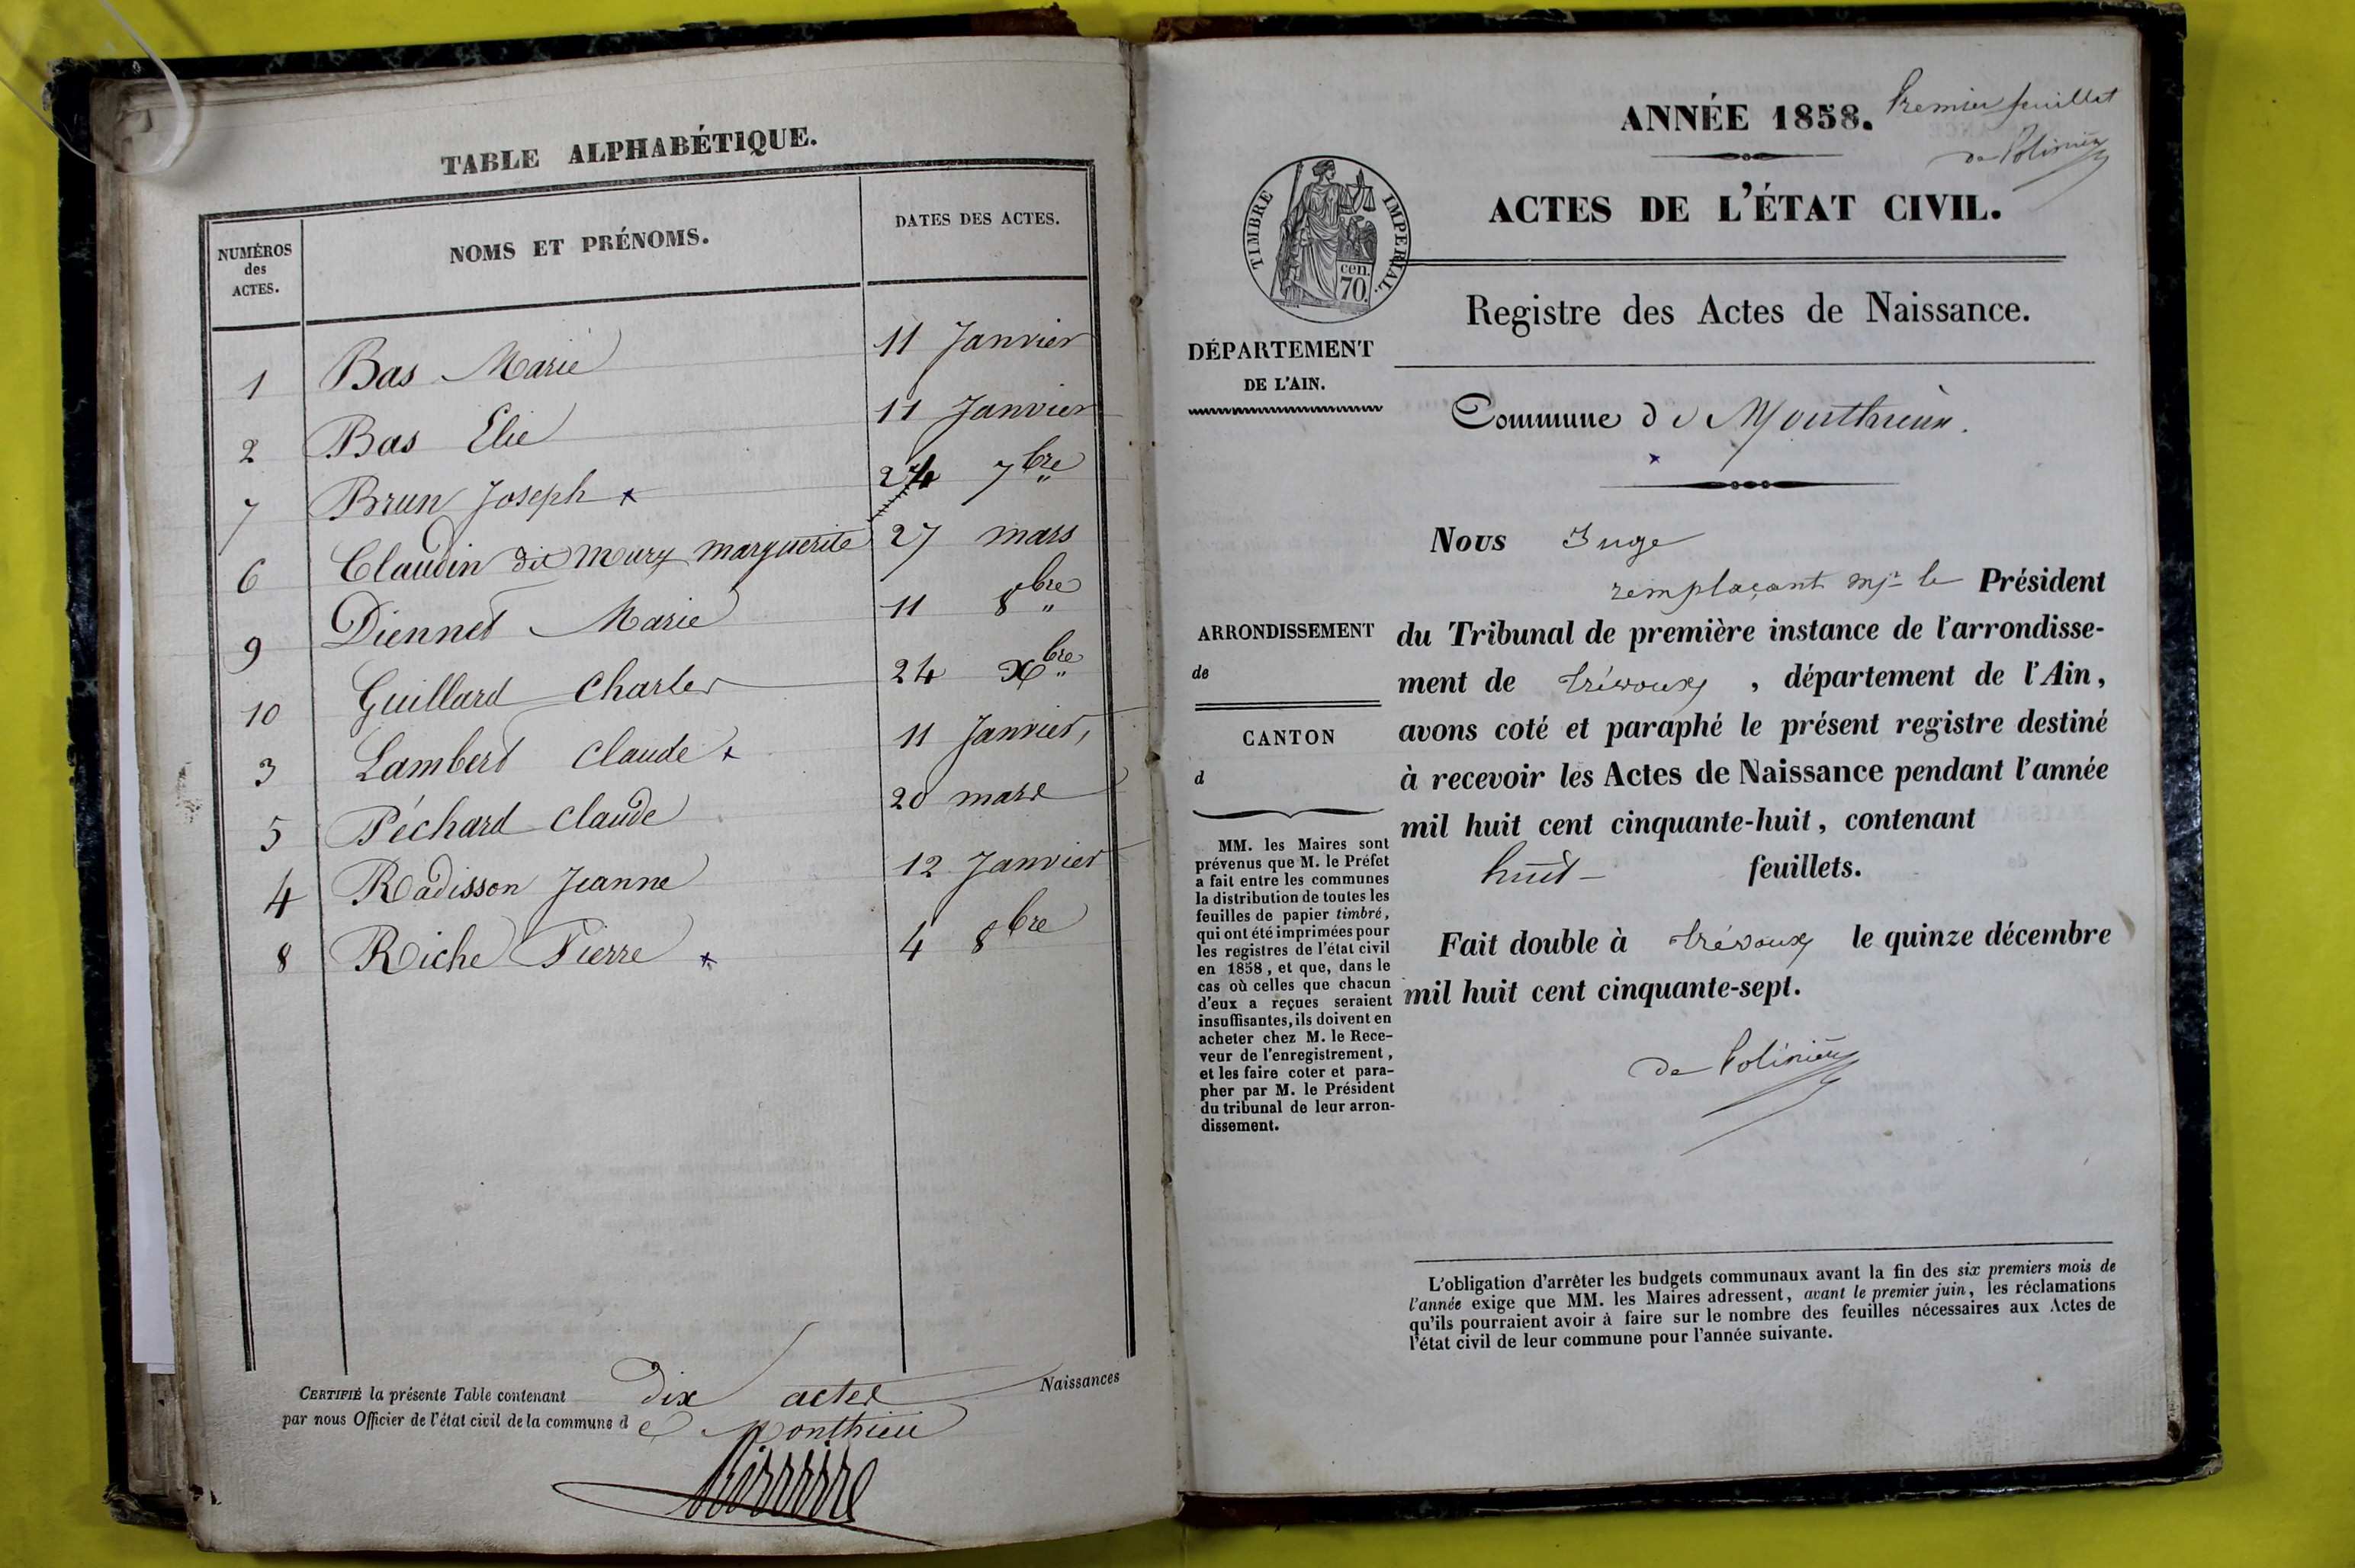 TABLE ALPHABÉTIQUE.
NUMÉROS des ACTES.
NOMS ET PRÉNOMS.
DATES DES ACTES.
1 Bas Marie 11 Janvier
2 Bas Elie 11 Janvier
7 Brun Joseph x 24 7bre
6 Claudin dit mury marguerite 27 mars
9 Diennet Marie 11 8bre
10 Guillard Charles 24 Xbre
3 Lambert Claude x 11 Janvier,
5 Péchard Claude 20 mars
4 Radisson Jeanne 12 Janvier
8 Riche Pierre x 4 8bre
CERTIFIÉ la présente Table contenant dix actes Naissances
par nous Officier de l'état civil de la commune de Monthieu
Premier feuillet
ANNÉE 1858.
de Polinière
ACTES DE L'ÉTAT CIVIL.
TIMBRE IMPERIAL.
cen. 70.
Registre des Actes de Naissance.
DÉPARTEMENT
DE L'AIN.
Commune de Monthieux.
Nous Juge
remplaçant Mr le Président
du Tribunal de première instance de l'arrondisse-
ment de trévoux, département de l'Ain,
avons coté et paraphé le présent registre destiné
à recevoir les Actes de Naissance pendant l'année
mil huit cent cinquante-huit, contenant
huit feuillets.
Fait double à trévoux le quinze décembre
mil huit cent cinquante-sept.
de Polinière
ARRONDISSEMENT
de
CANTON
d
MM. les Maires sont
prévenus que M. le Préfet
a fait entre les communes
la distribution de toutes les
feuilles de papier timbré,
qui ont été imprimées pour
les registres de l'état civil
en 1858, et que, dans le
cas où celles que chacun
d'eux a reçues seraient
insuffisantes, ils doivent en
acheter chez M. le Rece-
veur de l'enregistrement,
et les faire coter et para-
pher par M. le Président
du tribunal de leur arron-
dissement.
L'obligation d'arrêter les budgets communaux avant la fin des six premiers mois de
l'année exige que MM. les Maires adressent, avant le premier juin, les réclamations
qu'ils pourraient avoir à faire sur le nombre des feuilles nécessaires aux Actes de
l'état civil de leur commune pour l'année suivante.